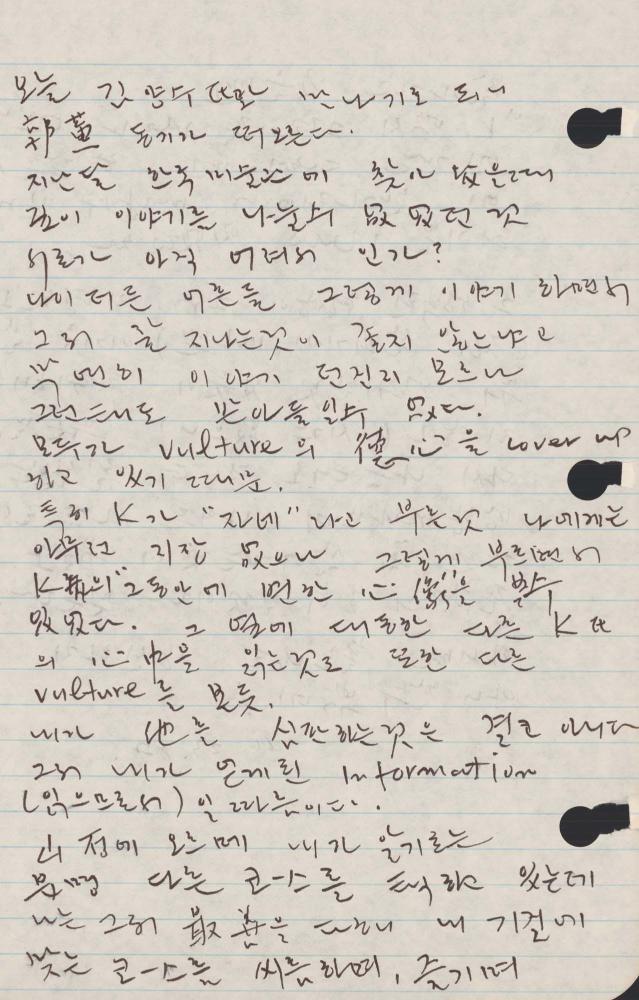 오늘 김양수 氏와 만나기로 되니
郭薰 동기가 떠오른다.
지난달 한국미술관에 찾아 왔을때
같이 이야기를 나눌수 없었던 것
서로가 아직 어려서 인가?
나이 더든 어른들 그렇게 이야기 하면서
그저 잘 지나는것이 좋지 않느냐고
빡 먼히 이야기 던진지 모르나
그런데도 받아들일수 없다.
모두가 vulture의 德心을 cover up
하고 있기 때문.
특히 K가 "자네"라고 부른것 나에게는
아무런 지장 없으나 그렇게 부르면서
K의 "그동안에 변한 心像"을 볼수
있었다. 그 옆에 대동한 다른 K氏
의 心中을 읽는것도 또한 다른
vulture를 보듯.
내가 他를 심판하는것은 결코 아니다
그저 내가 얻게된 Information
(읽으므로서)일 따름이다.
山정에 오르메 내가 알기로는
분명 다른 코-스를 택하고 있는데
나는 그저 最善을 다해 내 기질에
맞는 코-스를 씨름하며, 즐기며